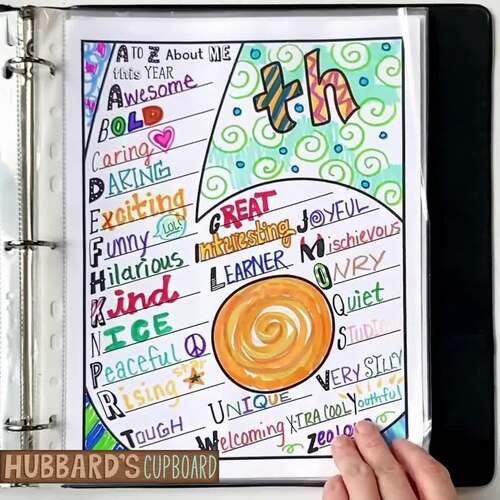 A TO Z About ME
this YEAR
th
Awesome
BOLD
Caring
DARING
Exciting
Funny LOL!
GREAT
Hilarious
Interesting
JOYFUL
Kind
LEARNER
Mischievous
NICE
ONRY
Peaceful
Quiet
Rising star
STUDIO
TOUGH
UNIQUE
VERY SILLY
Welcoming
X-TRA COOL
Youthful
Zealous
HUBBARD'S CUPBOARD